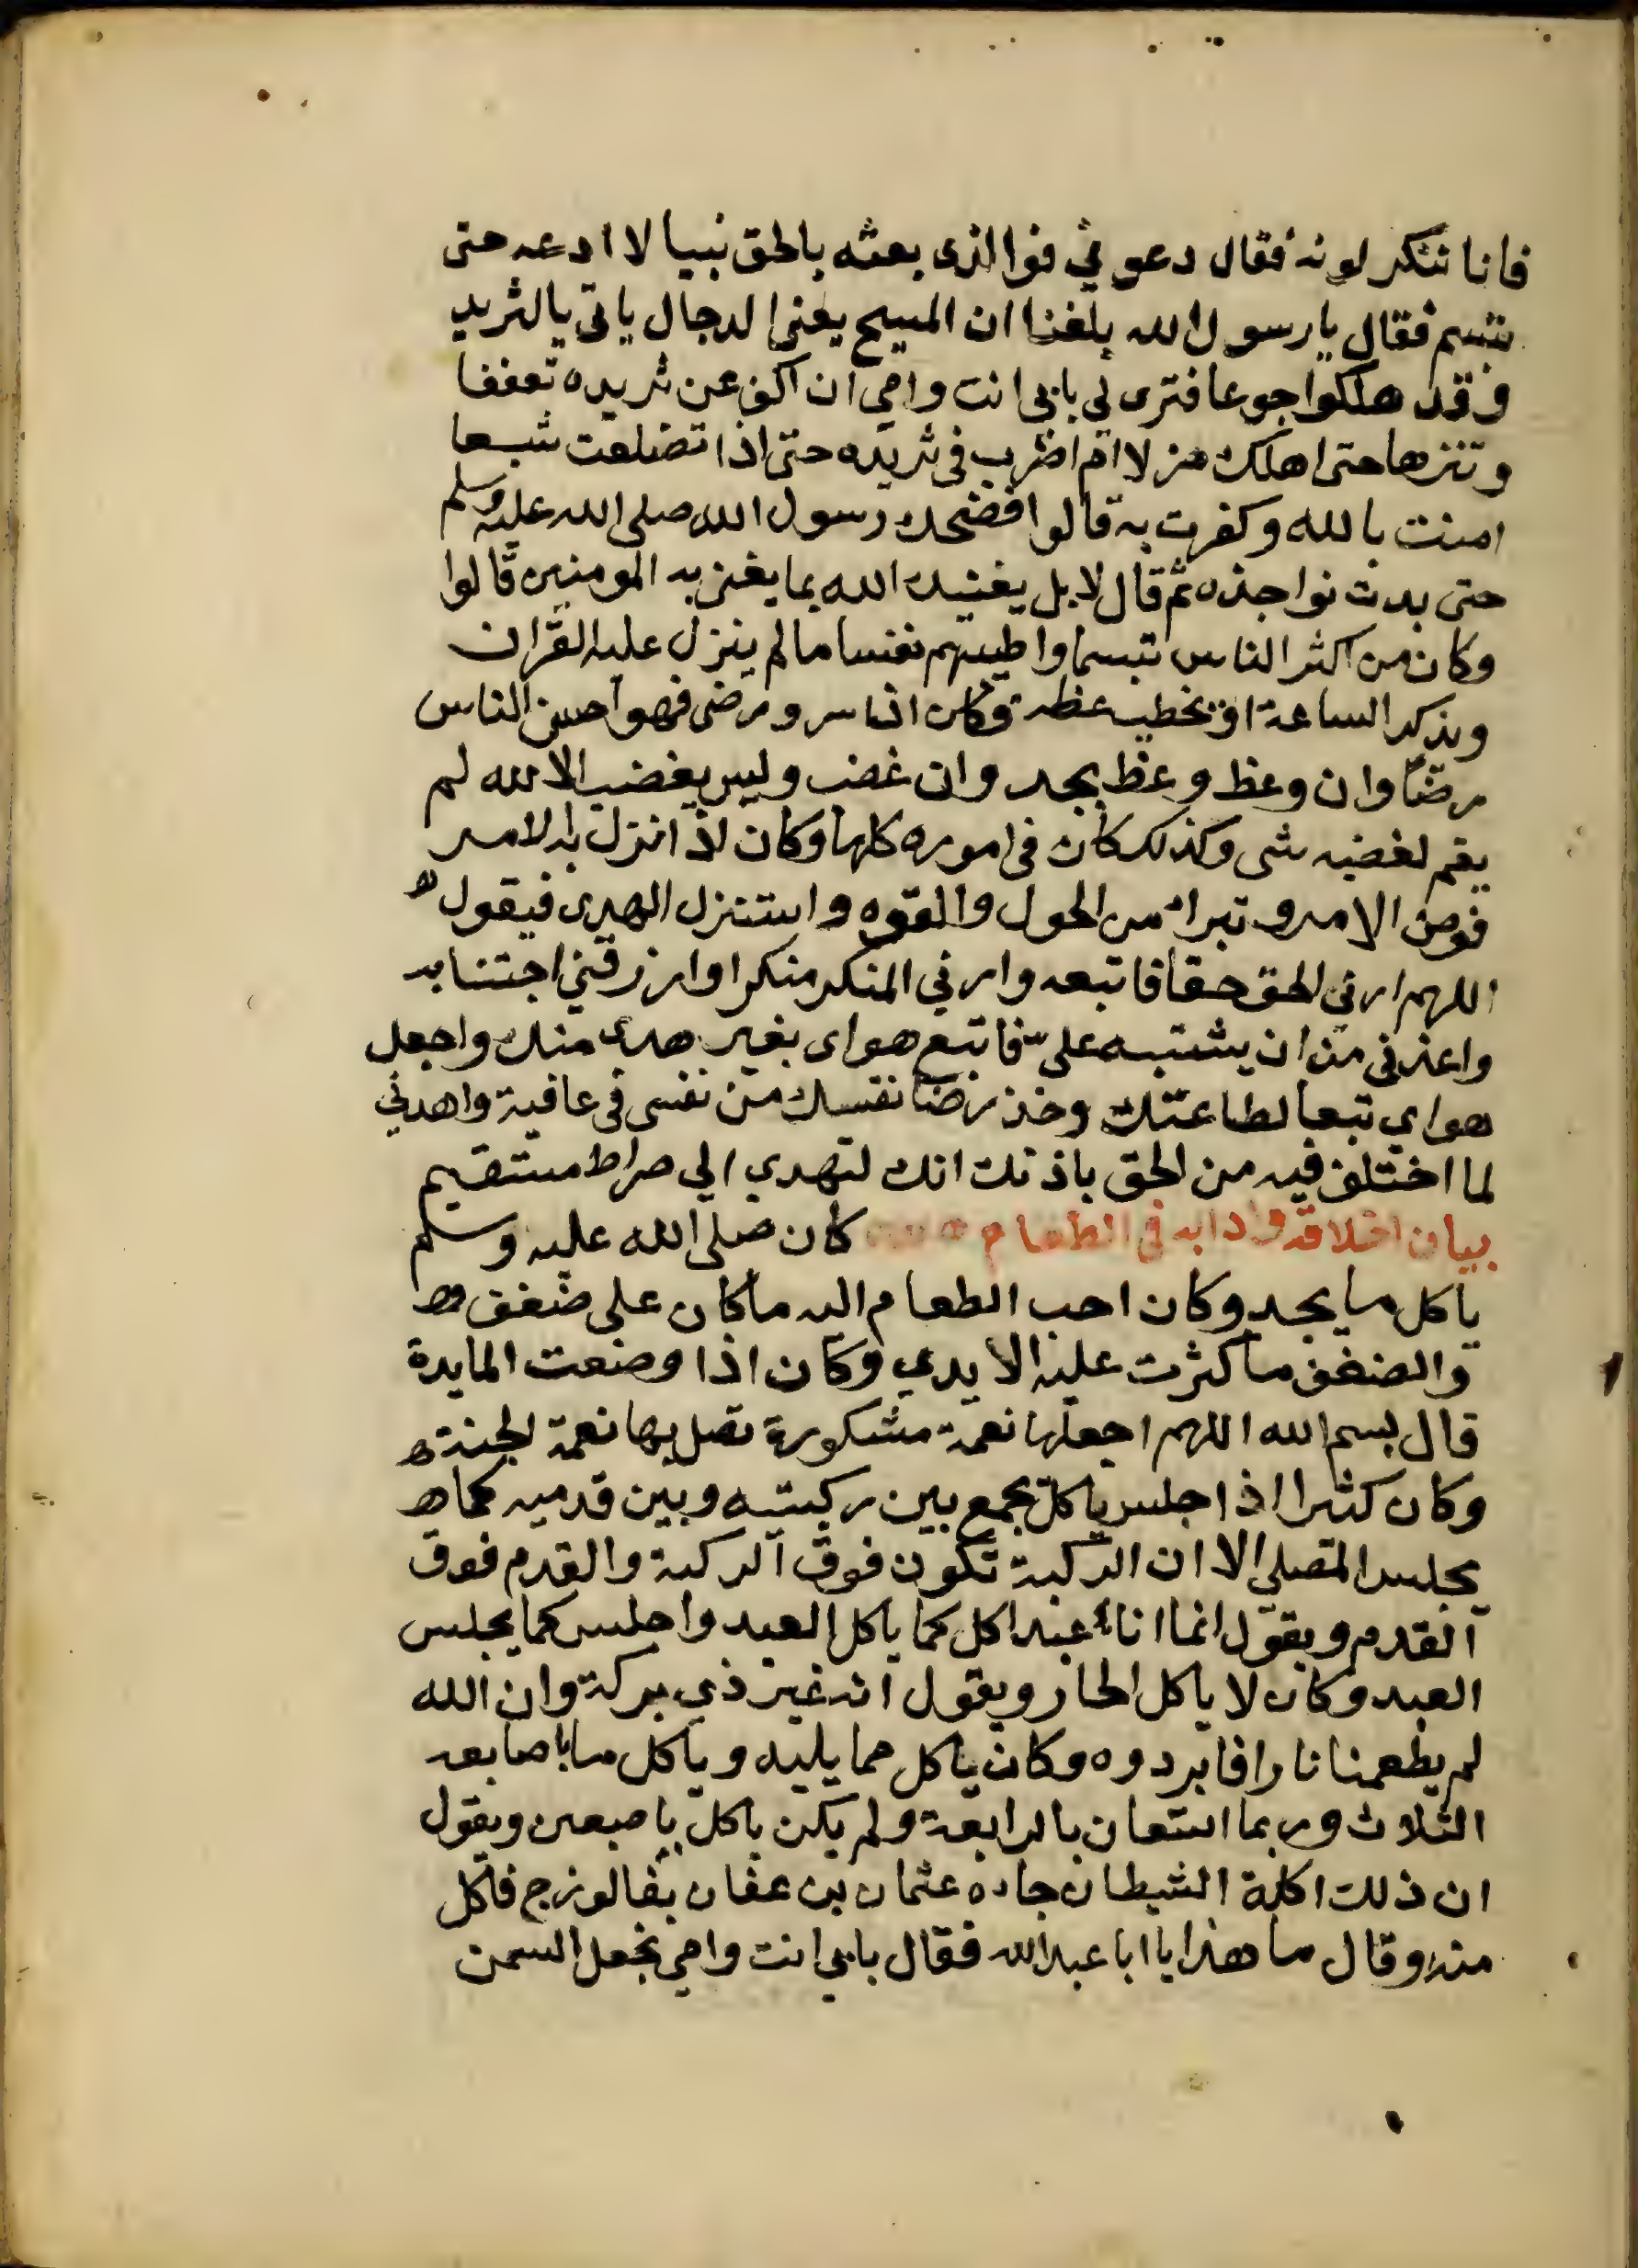 فانا ننكر لونه فقال دعوني فوالذي بعثه بالحق نبيا لا ادعه حتى
يتبسم فقال يا رسول الله بلغنا ان المسيح يعني الدجال ياتي بالثريد
وقد هلكوا جوعا فترى لي بابي انت وامي ان اكف عن ثريده تعففا
وتنزها حتى اهلك هزلا ام اضرب في ثريده حتى اذا تضلعت شبعا
امنت بالله وكفرت به قالوا فضحك رسول الله صلى الله عليه وسلم
حتى بدت نواجذه ثم قال لا بل يغنيك الله بما يغني به المومنين قالوا
وكان من اكثر الناس تبسما واطيبهم نفسا ما لم ينزل عليه القران
ويذكر الساعة او يخطب عظة وكان اذا سر ورضى فهو احسن الناس
رضا وان وعظ وعظ بجد وان غضب وليس يغضب الا لله لم
يقم لغضبه شى وكذلك كان في اموره كلها وكان اذا نزل به الامر
فوض الامر وتبرا من الحول والقوه واستنزل الهدى فيقول
اللهم ارني الحق حقا فاتبعه وارني المنكر منكرا وارزقني اجتنابه
واعذني من ان يشتبه علي فاتبع هواى بغير هدى منك واجعل
هواي تبعا لطاعتك وخذ رضا نفسك من نفسي في عافية واهدني
لما اختلف فيه من الحق باذنك انك لتهدي الي صراط مستقيم
بيان اخلاقه وادابه في الطعام كان صلى الله عليه وسلم
ياكل ما يجد وكان احب الطعام اليه ما كان على ضفف
والضفف ما كثرت عليه الايدي وكان اذا وضعت المايدة
قال بسم الله اللهم اجعلها نعمة مشكورة تصل بها نعمة الجنة
وكان كثيرا اذا جلس ياكل يجمع بين ركبتيه وبين قدميه كما
يجلس المصلي الا ان الركبة تكون فوق الركبة والقدم فوق
القدم ويقول انما انا عبد اكل كما ياكل العبد واجلس كما يجلس
العبد وكان لا ياكل الحار ويقول انه غير ذي بركة وان الله
لم يطعمنا نارا فابردوه وكان ياكل مما يليه وياكل باصابعه
الثلاث وربما استعان بالرابعة ولم يكن ياكل باصبعين ويقول
ان ذلك اكلة الشيطان جاه عثمان بن عفان بفالوزج فاكل
منه وقال ما هذا يا ابا عبد الله فقال بابي انت وامي نجعل السمن